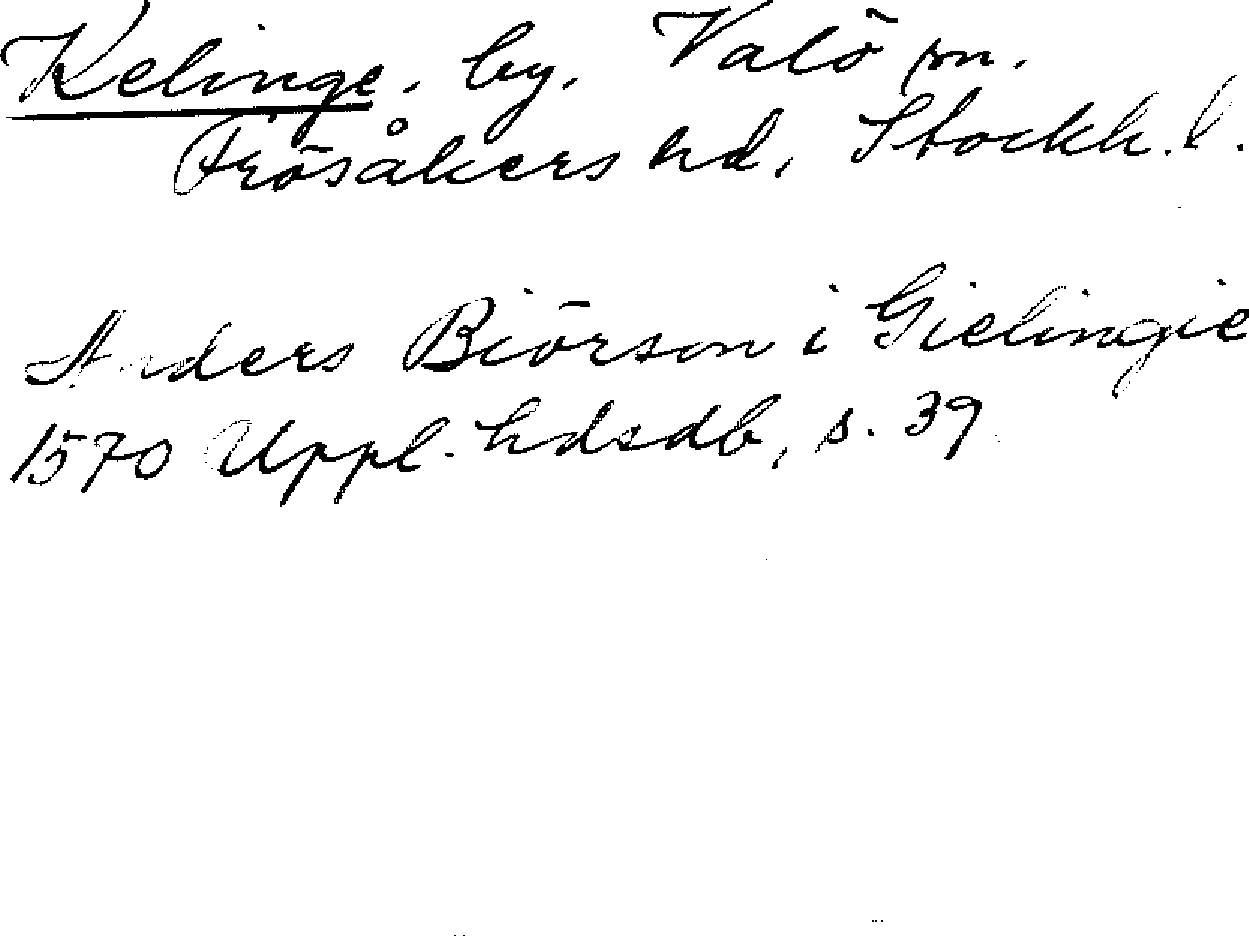 Kelinge, by, Valö sn.
Frösåkers hd, Stockh. l.
Anders Biörson i Gielingie
1570 Uppl. hdsdb, s. 39